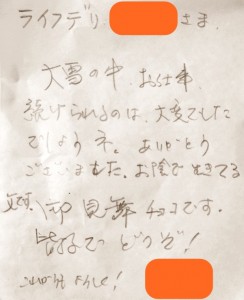 ライフデリ さま
大雪の中、お仕事
続けられるのは、大変でした
でしょうネ。ありがとう
ございました。お陰で生きてる
見舞チョコです。
皆子でっどうぞ!